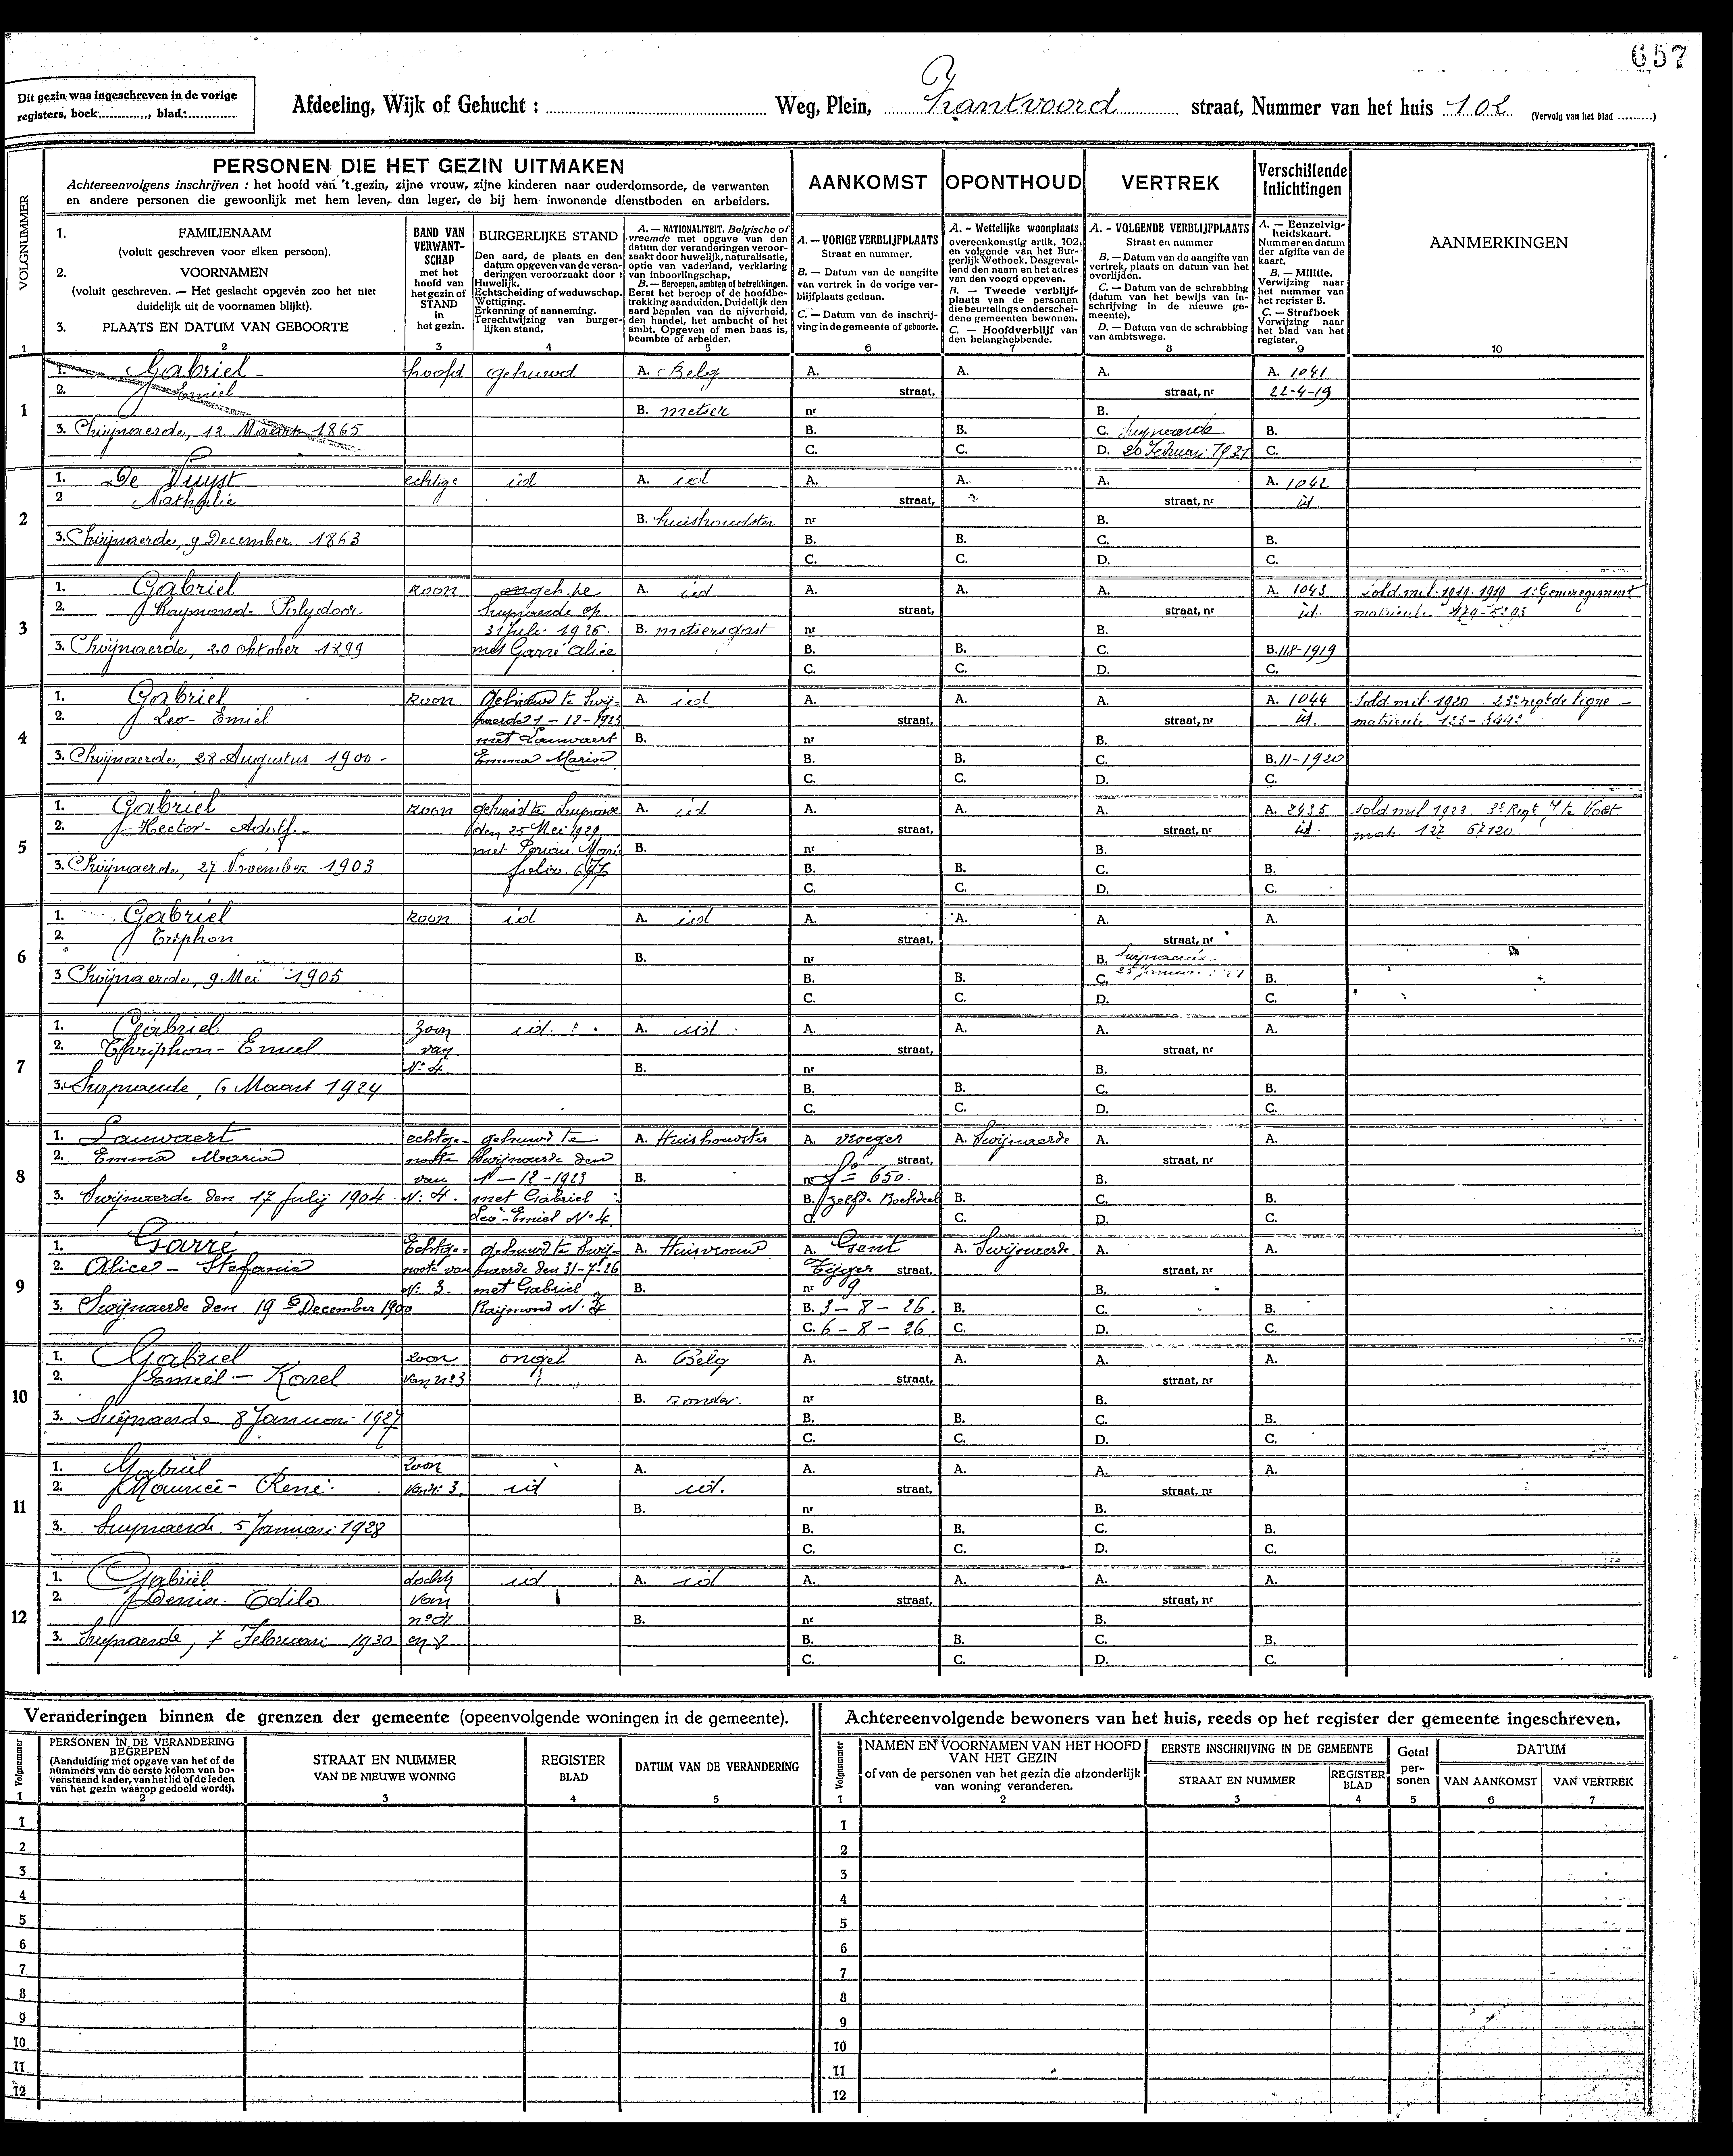 657
Dit gezin was ingeschreven in de vorige
registers, boek............, blad.............
Afdeeling, Wijk of Gehucht : ........ Weg, Plein, Zrantvoord straat, Nummer van het huis 102 (Vervolg van het blad .........)
VOLGNUMMER
PERSONEN DIE HET GEZIN UITMAKEN
Achtereenvolgens inschrijven : het hoofd van 't gezin, zijne vrouw, zijne kinderen naar ouderdomsorde, de verwanten
en andere personen die gewoonlijk met hem leven, dan lager, de bij hem inwonende dienstboden en arbeiders.
1. FAMILIENAAM
(voluit geschreven voor elken persoon).
2. VOORNAMEN
(voluit geschreven. — Het geslacht opgeven zoo het niet
duidelijk uit de voornamen blijkt).
3. PLAATS EN DATUM VAN GEBOORTE
BAND VAN
VERWANT-
SCHAP
met het
hoofd van
het gezin of
STAND
in
het gezin.
BURGERLIJKE STAND
Den aard, de plaats en den
datum opgeven van de veran-
deringen veroorzaakt door :
Huwelijk.
Echtscheiding of weduwschap.
Wettiging.
Erkenning of aanneming.
Terechtwijzing van burger-
lijken stand.
A. — NATIONALITEIT. Belgische of
vreemde met opgave van den
datum der veranderingen veroor-
zaakt door huwelijk, naturalisatie,
optie van vaderland, verklaring
van inboorlingschap.
B. — Beroepen, ambten of betrekkingen.
Eerst het beroep of de hoofdbe-
trekking aanduiden. Duidelijk den
aard bepalen van de nijverheid,
den handel, het ambacht of het
ambt. Opgeven of men baas is,
beambte of arbeider.
AANKOMST
A. — VORIGE VERBLIJFPLAATS
Straat en nummer.
B. — Datum van de aangifte
van vertrek in de vorige ver-
blijfplaats gedaan.
C. — Datum van de inschrij-
ving in de gemeente of geboorte.
OPONTHOUD
A. - Wettelijke woonplaats
overeenkomstig artik. 102,
en volgende van het Bur-
gerlijk Wetboek. Desgeval-
lend den naam en het adres
van den voogd opgeven.
B. — Tweede verblijf-
plaats van de personen
die beurtelings onderschei-
dene gemeenten bewonen.
C. — Hoofdverblijf van
den belanghebbende.
VERTREK
A. - VOLGENDE VERBLIJFPLAATS
Straat en nummer
B. — Datum van de aangifte van
vertrek, plaats en datum van het
overlijden.
C. — Datum van de schrabbing
(datum van het bewijs van in-
schrijving in de nieuwe ge-
meente).
D. — Datum van de schrabbing
van ambtswege.
Verschillende
Inlichtingen
A. — Eenzelvig-
heidskaart.
Nummer en datum
der afgifte van de
kaart.
B. — Militie.
Verwijzing naar
het nummer van
het register B.
C. — Strafboek
Verwijzing naar
het blad van het
register.
AANMERKINGEN
1 2 3 4 5 6 7 8 9 10
1
1. Gabriel hoofd gehuwd A. Belg A. A. A. A. 1041
2. Emiel straat, straat, nr 22-4-19
B. metser nr B.
3. Swijnaerde, 12 Maart 1865 B. B. C. Swynaerde B.
C. C. D. 20 Februari 1931 C.
2
1. De Vuyst echtge id A. id A. A. A. A. 1042
2 Nathalie straat, straat, nr id.
B. huishoudster nr B.
3. Swijnaerde, 9 December 1863 B. B. C. B.
C. C. D. C.
3
1. Gabriel zoon geh. te A. id A. A. A. A. 1043 sold. mil. 1919
2. Raymond- Polydoor Swynaerde op straat, straat, nr id. matricule
31 Juli 1926. B. metsersgast nr B.
3. Swijnaerde, 20 oktober 1899 met Garré Alice B. B. C. B. 118-1919
C. C. D. C.
4
1. Gabriel zoon Gehuwd te Swij- A. id A. A. A. A. 1044 Sold. mil. 1920 23e regt de ligne
2. Leo- Emiel naerde 1-12-1923 straat, straat, nr id. matricule 123-
met Lauwaert B. nr B.
3. Swijnaerde, 28 Augustus 1900 - Emma Maria B. B. C. B. 11-1920
C. C. D. C.
5
1. Gabriel zoon gehuwd te Swynaerde A. id A. A. A. A. 2435 sold mil 1923 3e Regt te Voet
2. Hector- Adolf- den 25 Mei 1929 straat, straat, nr id. mat. 127 67120
met Marie B. nr B.
3. Swijnaerde, 27 November 1903 folio 677 B. B. C. B.
C. C. D. C.
6
1. Gabriel zoon id A. id A. A. A. A.
2. Triphon straat, straat, nr
B. nr B. Swynaerde
3 Swijnaerde, 9 Mei 1905 B. B. C. 25 Januari B.
C. C. D.
7
1. Gabriel zoon id. A. id A. A. A. A.
2. Thriphon- Emiel van straat, straat, nr
N: 4 B. nr B.
3. Swynaerde, 6 Maart 1924 B. B. C. B.
C. C. D.
8
1. Lauwaert echtge- gehuwd te A. Huishoudster A. vroeger A. Swijnaerde A. A.
2. Emma Maria noote Swijnaerde den straat, straat, nr
van 1-12-1923 B. nr fo= 650. B.
3. Swijnaerde den 17 July 1904 N: 4. met Gabriel B. zelfde Boekdeel B. C. B.
Leo-Emiel No 4. C. C. D.
9
1. Garré Echtge- gehuwd te Swij- A. Huisvrouw A. Gent A. Swijnaerde A. A.
2. Alice - Stefanie noote van naerde den 31-7-26 Tijger straat, straat, nr
N: 3. met Gabriel B. nr 9. B.
3. Swijnaerde den 19 December 1900 Raijmond N. 3 B. 3-8-26. B. C. B.
C. 6-8-26. C. D. C.
10
1. Gabriel zoon ongeh A. Belg A. A. A. A.
2. Emiel - Karel van no3 straat, straat, nr
B. zonder. nr B.
3. Swijnaerde 8 Januari- 1927 B. B. C. B.
C. C. D. C.
11
1. Gabriel zoon A. A. A. A. A.
2. Maurice- René. van n: 3. id id. straat, straat, nr
B. nr B.
3. Swynaerde, 5 Januari 1928 B. B. C. B.
C. C. D. C.
12
1. Gabriel docht id A. id A. A. A. A.
2. Denise. Odila van straat, straat, nr
no 4 B. nr B.
3. Swynaerde, 7 Februari 1930 en 8 B. B. C. B.
C. C. D. C.
Veranderingen binnen de grenzen der gemeente (opeenvolgende woningen in de gemeente).
Volgnummer
PERSONEN IN DE VERANDERING
BEGREPEN
(Aanduiding met opgave van het of de
nummers van de eerste kolom van bo-
venstaand kader, van het lid of de leden
van het gezin waarop gedoeld wordt).
STRAAT EN NUMMER
VAN DE NIEUWE WONING
REGISTER
BLAD
DATUM VAN DE VERANDERING
1 2 3 4 5
1
2
3
4
5
6
7
8
9
10
11
12
Achtereenvolgende bewoners van het huis, reeds op het register der gemeente ingeschreven.
Volgnummer
NAMEN EN VOORNAMEN VAN HET HOOFD
VAN HET GEZIN
of van de personen van het gezin die afzonderlijk
van woning veranderen.
EERSTE INSCHRIJVING IN DE GEMEENTE
STRAAT EN NUMMER
REGISTER
BLAD
Getal
per-
sonen
DATUM
VAN AANKOMST
VAN VERTREK
1 2 3 4 5 6 7
1
2
3
4
5
6
7
8
9
10
11
12